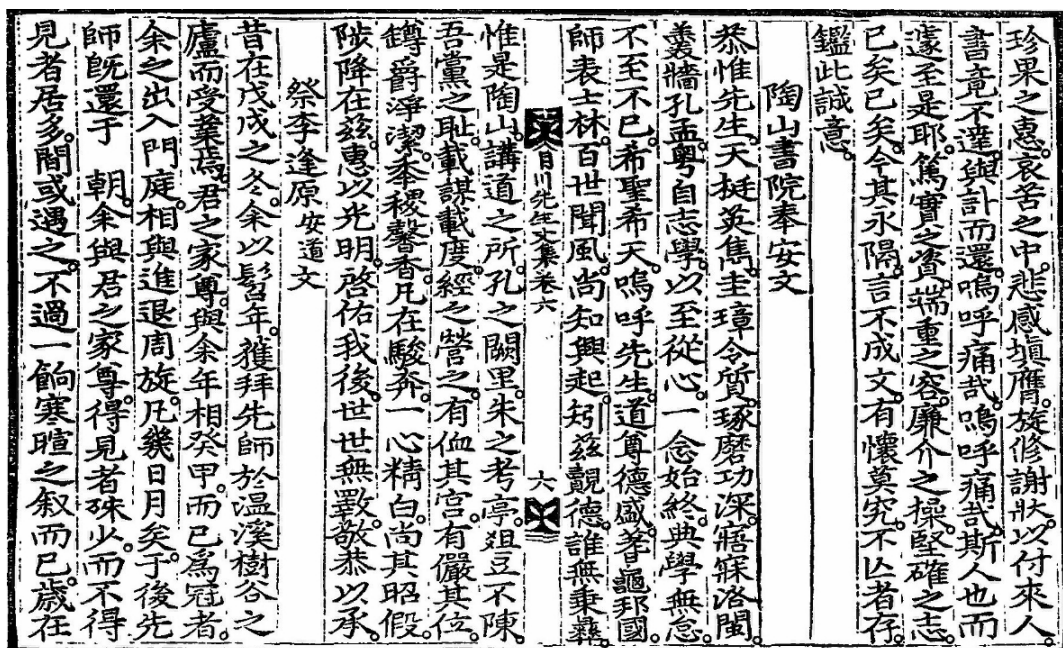 珍果之惠。哀苦之中。悲感塡膺。旋修謝狀。以付來人。
書竟不達。與訃而還。嗚呼痛哉。嗚呼痛哉。斯人也而
遽至是耶。篤實之資。端重之容。廉介之操。堅確之志。
已矣已矣。今其永隔。言不成文。有懷莫究。不亾者存。
鑑此誠意。
陶山書院奉安文
恭惟先生。天挺英雋。圭璋令質。琢磨功深。寤寐洛閩。
羹牆孔孟。粤自志學。以至從心。一念始終。典學無怠。
不至不已。希聖希天。嗚呼先生。道尊德盛。蓍龜邦國。
師表士林。百世聞風。尚知興起。矧茲覿德。誰無秉彝。
月川先生文集卷六
六
惟是陶山。講道之所。孔之闕里。朱之考亭。俎豆不陳。
吾黨之耻。載謀載度。經之營之。有侐其宮。有儼其位。
鐏爵淨潔。黍稷馨香。凡在駿奔。一心精白。尚其昭假。
陟降在茲。惠以光明。啓佑我後。世世無斁。敬恭以承。
祭李逢原安道文
昔在戊戌之冬。余以髫年。獲拜先師於溫溪樹谷之
廬而受業焉。君之家尊。與余年相癸甲。而已爲冠者。
余之出入門庭。相與進退周旋。凡幾日月矣。于後先
師旣還于 朝。余與君之家尊。得見者殊少。而不得
見者居多。閒或遇之。不過一餉寒暄之叙而已。歲在